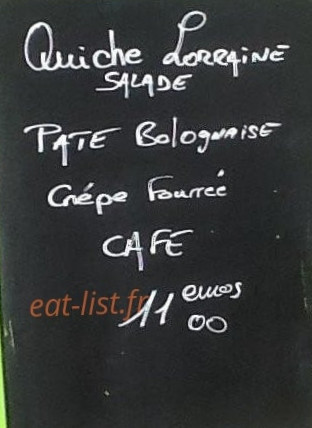 Quiche Lorraine
SALADE
PATE Bolognaise
Crépe Fourreé
CAFE
eat-list.fr
11 euros
00